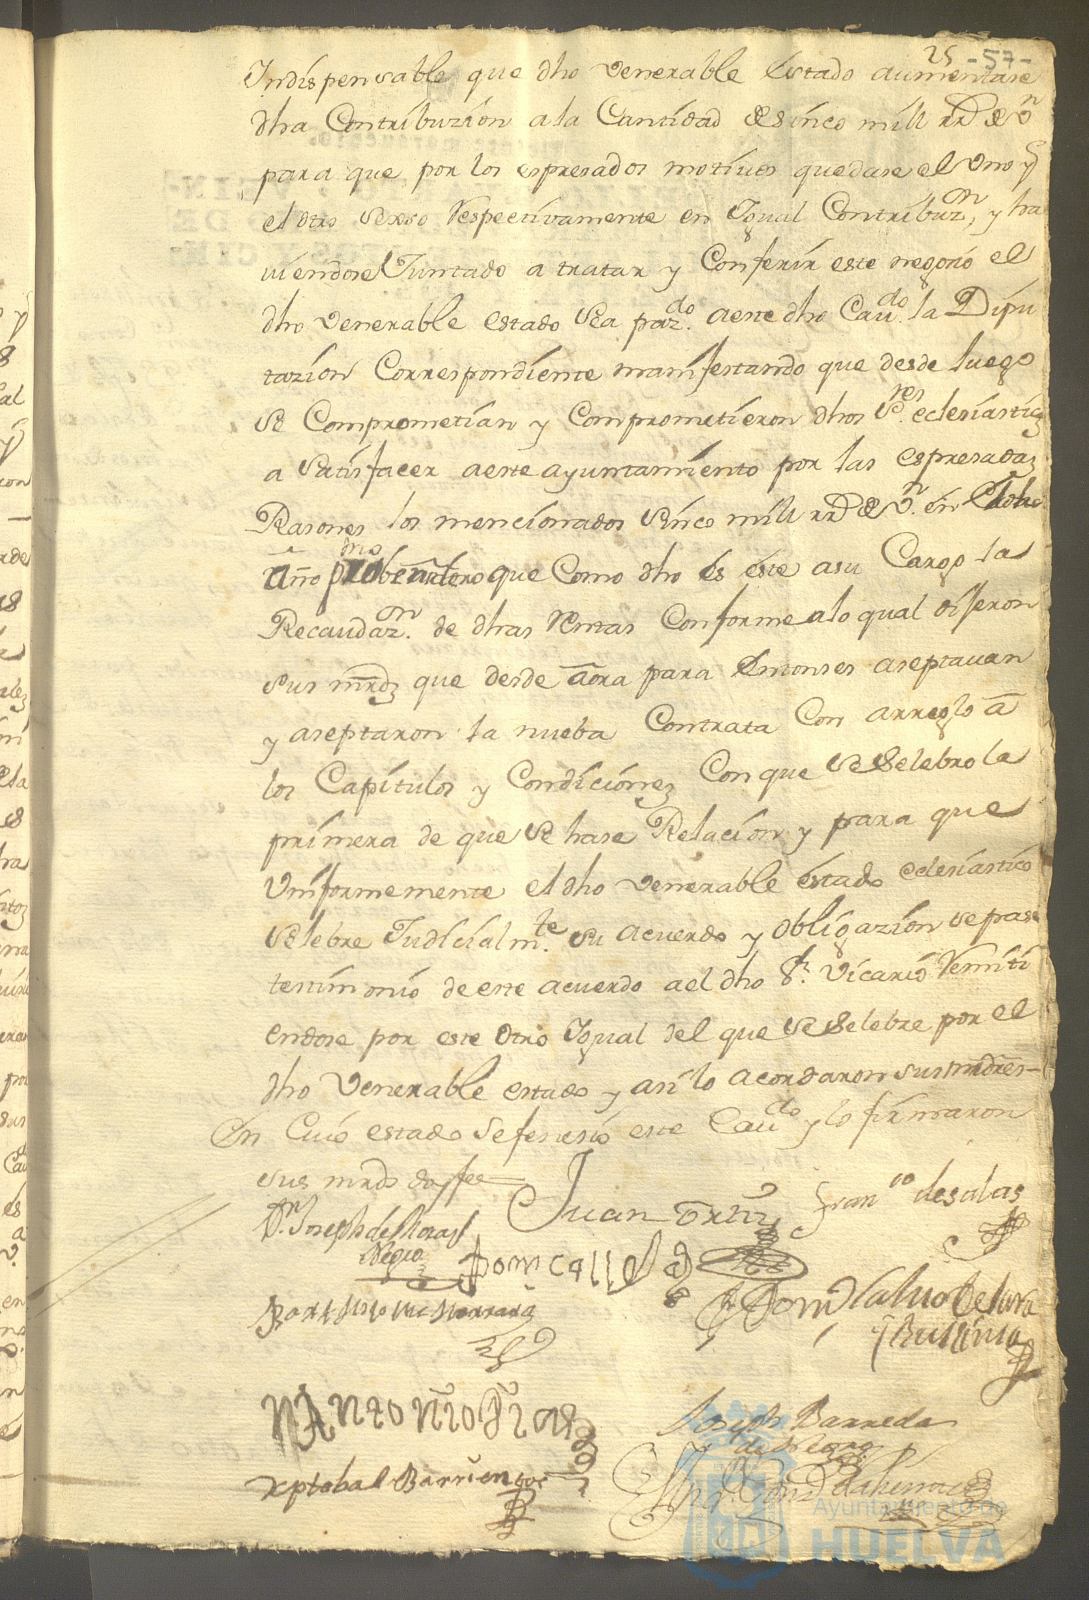 25 -57-
Indispensable que dho venerable Estado aumentase
dha Contribuzion ala Cantidad de sinco mill rrs de vn
para que por los espresados motivos quedase el Uno y
el otro Respectivamente en Igual Contribuzn, y ha
viendose Juntado a tratar y Conferir este negosio el
dho venerable estado sea pazdo aeste dho Cavdo la Dipu
tazion Correspondiente manifestando que desde luego
se Comprometian y Comprometieron dhos Sres eclesiastics
a satisfacer aeste ayuntamiento por las espresadas
Rasones los mencionados sinco mill rrs de vn en
año que Como dho es este asu Cargo la
Recaudazn de dhas Rentas Conforme alo qual dijeron
sus mrds que desde aora para Entonses aseptavan
y aseptaron la nueba Contrata Con arreglo a
los Capitulos y Condiciones Con que se Selebro la
primera de que se hase Relacion y para que
Uniformemente el dho venerable estado eclesiastico
selebre Judicialmte su acuerdo y obligazion se pase
testimonio de este acuerdo ael dho Sr. Vicario Remiti
endose por este otro Igual del que se Selebre por el
dho Venerable estado y asi lo acordaron sus mrdes
En Cuio estado se fenesio este Cavdo y lo firmaron
sus mrds doy fee
Dn Joseph de Mora Juan Ortiz Franco de salas
Negro
Bartholome
Dn Antonio Dias
Joseph Barreda
de Negro
Xptobal Barrientos
Ayuntamiento de
HUELVA